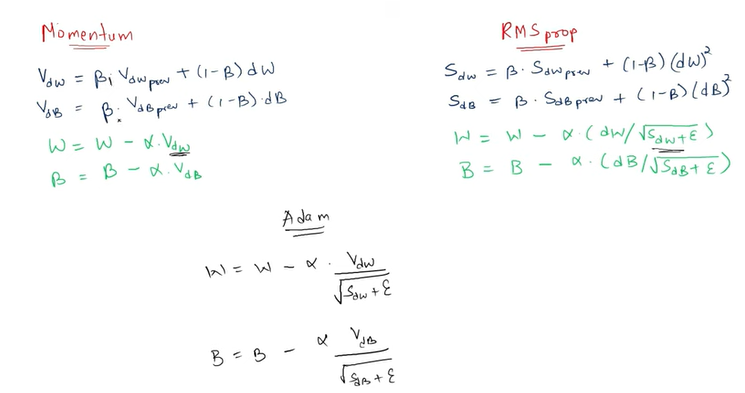 Momentum
V_dW = β₁ V_dWprev + (1-β) dW
V_dB = β. V_dBprev + (1-β)·dB
W = W - α·V_dW
B = B - α·V_dB
RMSprop
S_dW = β· S_dWprev + (1-β)(dW)²
S_dB = β· S_dBprev + (1-β)(dB)²
W = W - α·(dW/√(S_dW+ε))
B = B - α·(dB/√(S_dB+ε))
Adam
W = W - α · V_dW / √(S_dW + ε)
B = B - α V_dB / √(S_dB + ε)